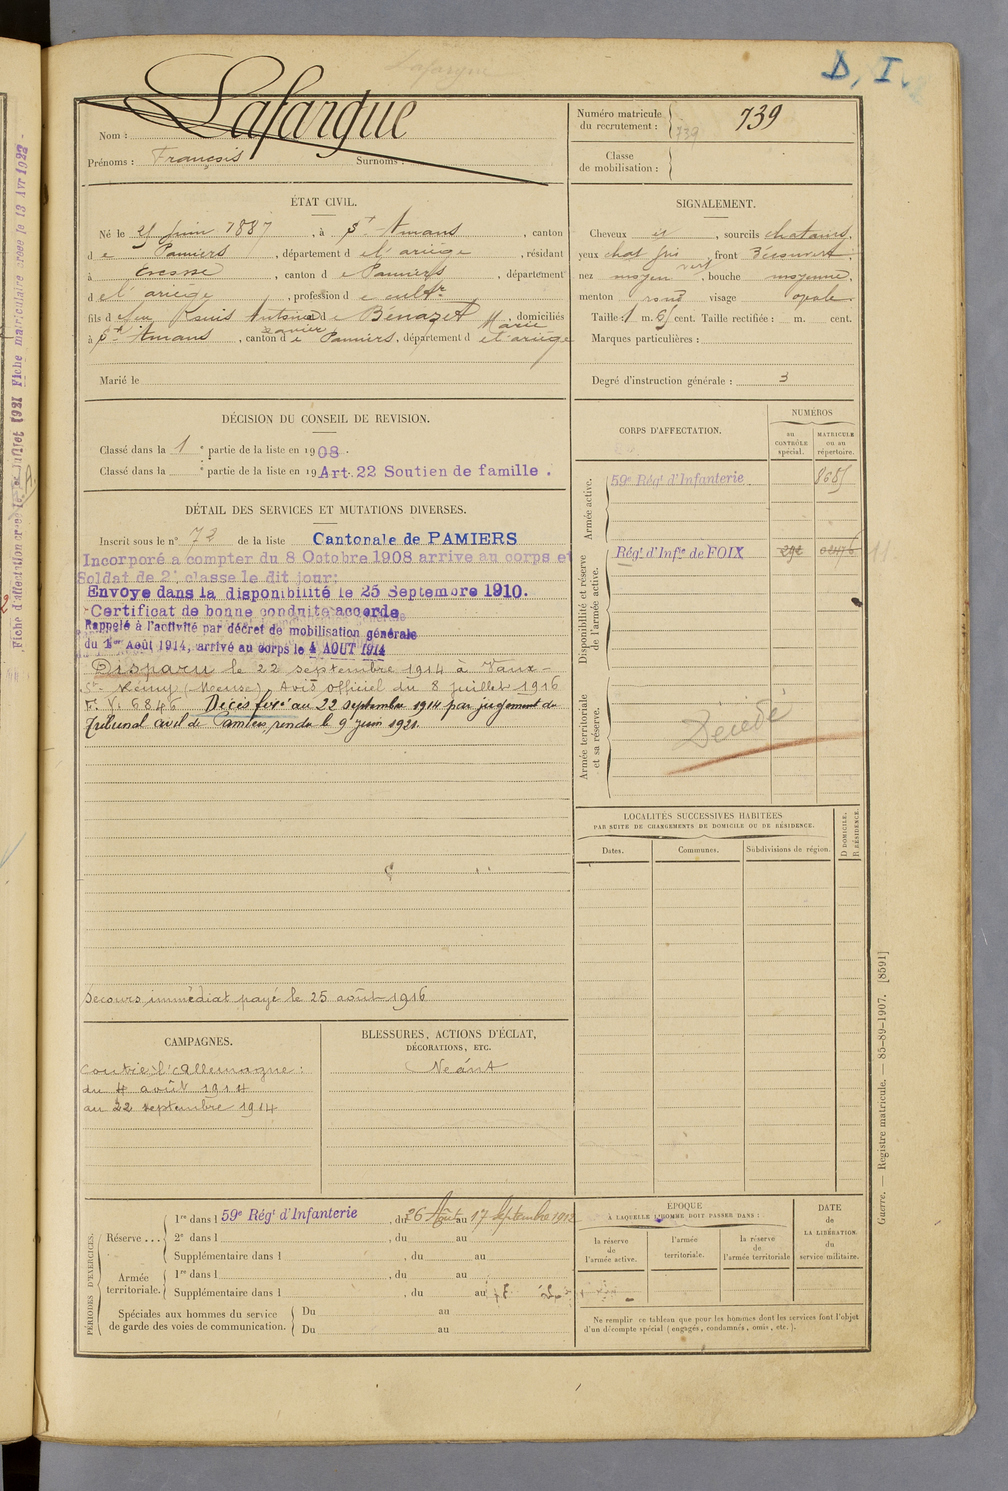 D, I.
Lafargue
Nom : Lafargue
Prénoms : François Surnoms :
Numéro matricule du recrutement : 739
739
Classe de mobilisation :
ÉTAT CIVIL.
Né le 21 juin 1887, à St Amans, canton
de Pamiers, département de l'ariège, résidant
à Escosse, canton de Pamiers, département
de l'ariège, profession de cultr
fils de feu Antoine et de Bénazet Marie, domiciliés
à St Amans, canton de Pamiers, département de l'ariège
Marié le
SIGNALEMENT.
Cheveux et, sourcils chatains,
yeux chat gris vert, front Découvert,
nez moyen, bouche moyenne,
menton rond visage opale
Taille : 1 m. 65 cent. Taille rectifiée : m. cent.
Marques particulières :
Degré d'instruction générale : 3
DÉCISION DU CONSEIL DE REVISION.
Classé dans la 1e partie de la liste en 1908.
Classé dans la e partie de la liste en 19 Art. 22 Soutien de famille.
DÉTAIL DES SERVICES ET MUTATIONS DIVERSES.
Inscrit sous le n° 72 de la liste Cantonale de PAMIERS
Incorporé a compter du 8 Octobre 1908 arrive au corps et
Soldat de 2e classe le dit jour;
Envoye dans la disponibilité le 25 Septembre 1910.
Certificat de bonne conduite accorde
Rappelé à l'activité par décret de mobilisation générale
du 1er Août 1914, arrivé au corps le 4 AOUT 1914
Disparu le 22 septembre 1914 à Vaux-
St-Rémy (Meuse). Avis officiel du 8 juillet 1916
F. V. 6846 Décès fixé au 22 septembre 1914 par jugement du
Tribunal civil de Pamiers, rendu le 9 juin 1921.
Secours immédiat payé le 25 août 1916
CORPS D'AFFECTATION.
NUMÉROS
au CONTRÔLE spécial.
MATRICULE ou au répertoire.
Armée active.
59e Régt d'Infanterie 8685
Disponibilité et réserve de l'armée active.
Régt d'Infie de FOIX 292 02476
Armée territoriale et sa réserve.
Décédé
LOCALITÉS SUCCESSIVES HABITÉES
PAR SUITE DE CHANGEMENTS DE DOMICILE OU DE RÉSIDENCE.
Dates. Communes. Subdivisions de région.
D DOMICILE.
R RÉSIDENCE.
CAMPAGNES.
Contre l'Allemagne :
du 4 août 1914
au 22 septembre 1914
BLESSURES, ACTIONS D'ÉCLAT,
DÉCORATIONS, ETC.
Néant
PÉRIODES D'EXERCICES.
Réserve ...
1re dans l 59e Régt d'Infanterie, du 26 Août au 17 Septembre 1912
2e dans l , du au
Supplémentaire dans l , du au
Armée territoriale.
1re dans l , du au
Supplémentaire dans l , du au
Spéciales aux hommes du service de garde des voies de communication.
Du au
Du au
ÉPOQUE
À LAQUELLE L'HOMME DOIT PASSER DANS :
la réserve de l'armée active.
l'armée territoriale.
la réserve de l'armée territoriale
DATE de LA LIBÉRATION du service militaire.
Ne remplir ce tableau que pour les hommes dont les services font l'objet
d'un décompte spécial (engagés, condamnés, omis, etc.).
Guerre. — Registre matricule. — 85-89-1907. [8591]
Fiche matriculaire créée le 13 Avr 1922